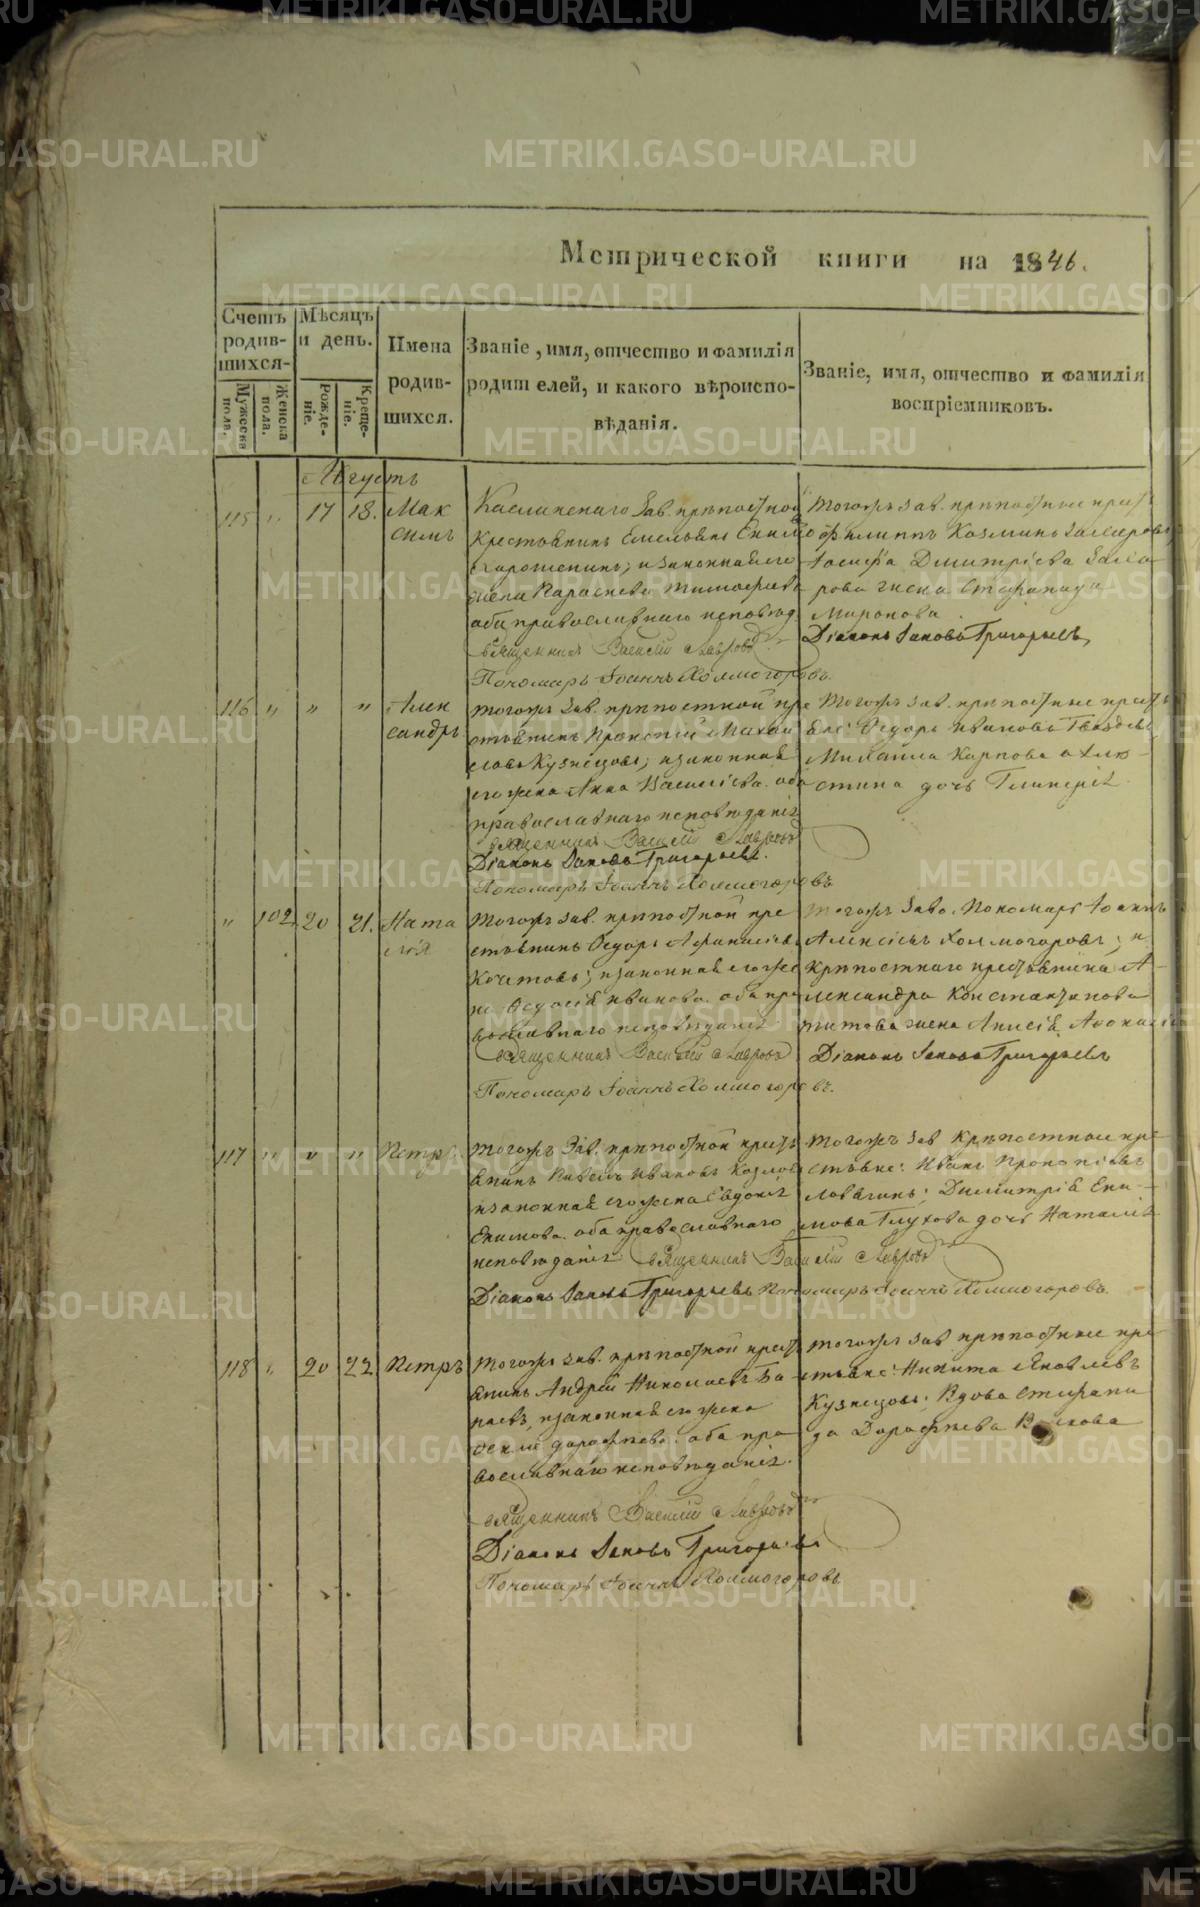 Метрической книги на 1846.
Счетъ родив-шихся-
Мужеска пола.
Женска пола.
Мѣсяцъ и день.
Рожде-ніе.
Креще-ніе.
Имена родив-шихся.
Званіе, имя, отчество и фамилія
родителей, и какого вѣроиспо-
вѣданія.
Званіе, имя, отчество и фамилія
воспріемниковъ.
Августъ
115 " 17 18. Мак
симъ
Каслинскаго Зав. крѣпостной
крестьянинъ Емельянъ
и законная его
жена Параскева Тимофѣева
оба православнаго исповѣд.
Священникъ Василій Лавровъ
Пономарь Іоаннъ Холмогоровъ.
тогожъ зав. крѣпостные крест
Филиппъ Козминъ
Дмитріева
рова жена Стефанида
Миронова.
Діаконъ Іаковъ Григорьевъ
116 " " " Алек
сандръ
тогожъ Зав. крѣпостной кре
стьянинъ Прокопій Михай
ловъ Кузнецовъ; и законная
его жена Анна Василіева. оба
православнаго исповѣданія
Священникъ Василій Лавровъ
Діаконъ Іаковъ Григорьевъ.
Пономарь Іоаннъ Холмогоровъ
тогожъ зав. крѣпостные кресть
яне: Ѳедоръ Ивановъ
Михаила Карпова
дочь Гликерія
" 102 20 21. Ната
лія
тогожъ зав. крѣпостной кре
стьянинъ Ѳедоръ Афанасіевъ
Кочетовъ; и законная его же
на Ѳедосія Иванова. оба пра
вославнаго исповѣданія
Священникъ Василій Лавровъ
Пономарь Іоаннъ Холмогоровъ.
тогожъ Заво. Пономарь Іоаннъ
Алексіевъ Холмогоровъ; и
крѣпостнаго крестьянина А-
лександра Константинова
Титова жена Анисія
Діаконъ Іаковъ Григорьевъ
117 " " " Петръ
тогожъ Зав. крѣпостной кресть
янинъ Павелъ Ивановъ Козлов
и законная его жена Евдокія
Екимова. оба православнаго
исповѣданія Священникъ Василій Лавровъ
Діаконъ Іаковъ Григорьевъ Пономарь Іоаннъ Холмогоровъ.
тогожъ зав крѣпостные кре
стьяне: Иванъ Прокопіевъ
Димитрія Еки-
мова Глухова дочь Наталія
118 " 20 22 Петръ
тогожъ зав. крѣпостной кресть
янинъ Андрей Николаевъ Ба-
и законная его жена
оба пра
вославнаго исповѣданія.
Священникъ Василій Лавровъ
Діаконъ Іаковъ Григорьевъ
Пономарь Іоаннъ Холмогоровъ
тогожъ зав крѣпостные кре
стьяне: Никита Яковлевъ
Кузнецовъ; Вдова Стефани
да Дорофѣева
METRIKI.GASO-URAL.RU